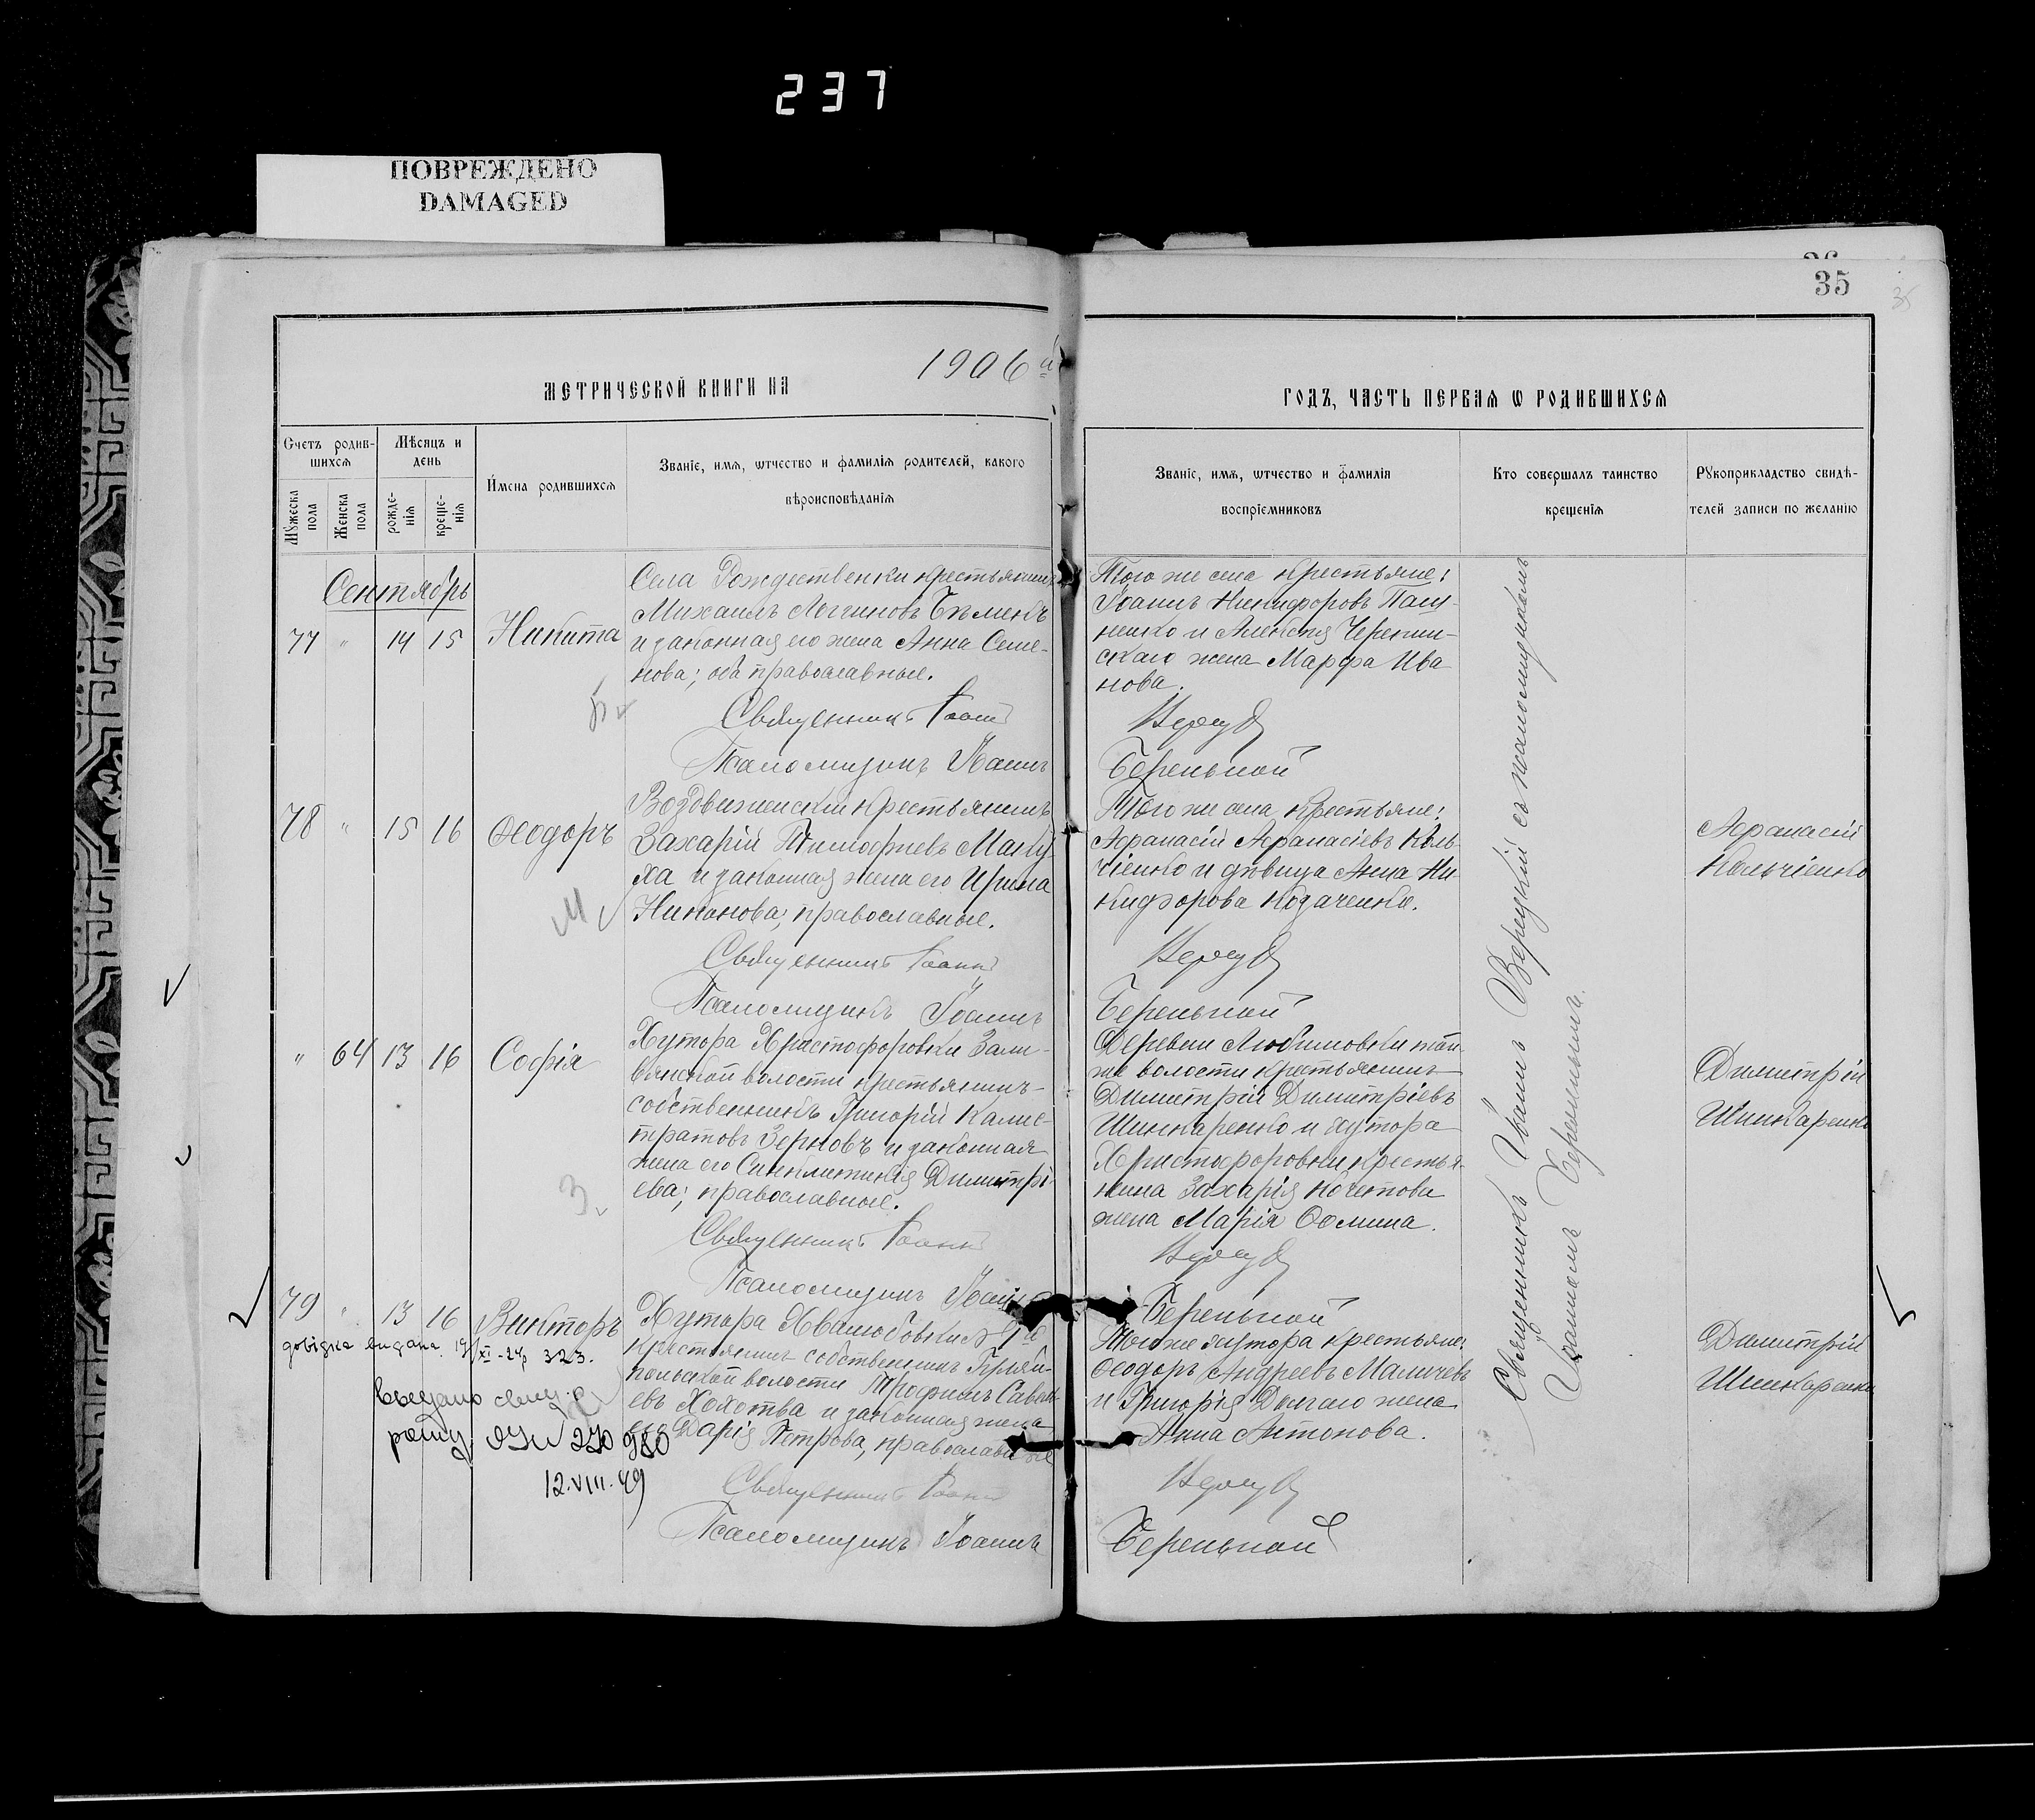 237
ПОВРЕЖДЕНО
DAMAGED
35
35
1906й
МЕТРИЧЕСКОЙ КНИГИ НА
ГОДЪ, ЧАСТЬ ПЕРВАЯ Ѡ РОДИВШИХСЯ
Счетъ родив-
шихся
Мѣсяцъ и
день
Мꙋжеска
пола
Женска
пола
рожде-
нїя
креще-
нїя
Имена родившихся
Званїе, имя, ѡтчество и фамилїя родителей, какого
вѣроисповѣданїя
Званїе, имя, ѡтчество и фамилїя
воспрїемниковъ
Кто совершалъ таинство
крещенїя
Рꙋкоприкладство свидѣ-
телей записи по желанїю
Сентябрь
77 " 14 15 Никита
Села Рождественки крестьянинъ
Михаилъ Логгиновъ
и законная его жена Анна Семе-
нова; оба православные.
Священникъ Іоаннъ
Псаломщикъ Іоаннъ
Того же села крестьяне:
Іоаннъ Никифоровъ Пащ-
ненко и Алексія Черепин-
скаго жена Марфа Ива
нова.
Верецкій
Береньной
78 " 15 16 Ѳеодоръ
Воздвиженскій крестьянинъ
Захарій Тимофиевъ
ха и законная жена его Ирина
православные.
Священникъ Іоаннъ
Псаломщикъ Іоаннъ
Того же села крестьяне:
Афанасій Афанасіевъ Коль-
чіенко и дѣвица Анна Ни
кифорова Козаченкова.
Верецкій
Береньной
Афанасій
Кольчіенко
" 64 13 16 Софія
Хутора Христофоровки Зали-
вянской волости крестьянинъ-
собственникъ Григорій Калис-
тратовъ Зерновъ и законная
жена его Синклитикія Димитрі-
ева; православные.
Священникъ Іоаннъ
Псаломщикъ Іоаннъ
Деревни Любимовки той-
же волости крестьянинъ
Димитрій Димитріевъ
Шинкаренко и хутора
Христофоровки крестья-
нина Захарія Кочетова
жена Марія Ѳомина.
Верецкій
Береньной
Димитрій
Шинкаренко
79 " 13 16 Викторъ
Хутора
крестьянинъ собственникъ
польской волости Трофимъ
евъ и законная жена
его Дарія Петрова, православные
Священникъ Іоаннъ
Псаломщикъ Іоаннъ
Того же хутора крестьяне:
Ѳеодоръ Андреевъ Маличевъ
и Григорія Долгаго жена
Анна Антонова.
Верецкій
Береньной
Димитрій
Шинкаренко
довідка видана 323.
12.VIII.49
Священникъ Іоаннъ Верецкій съ псаломщикомъ
Іоанномъ Береньнымъ.
Б
М
З